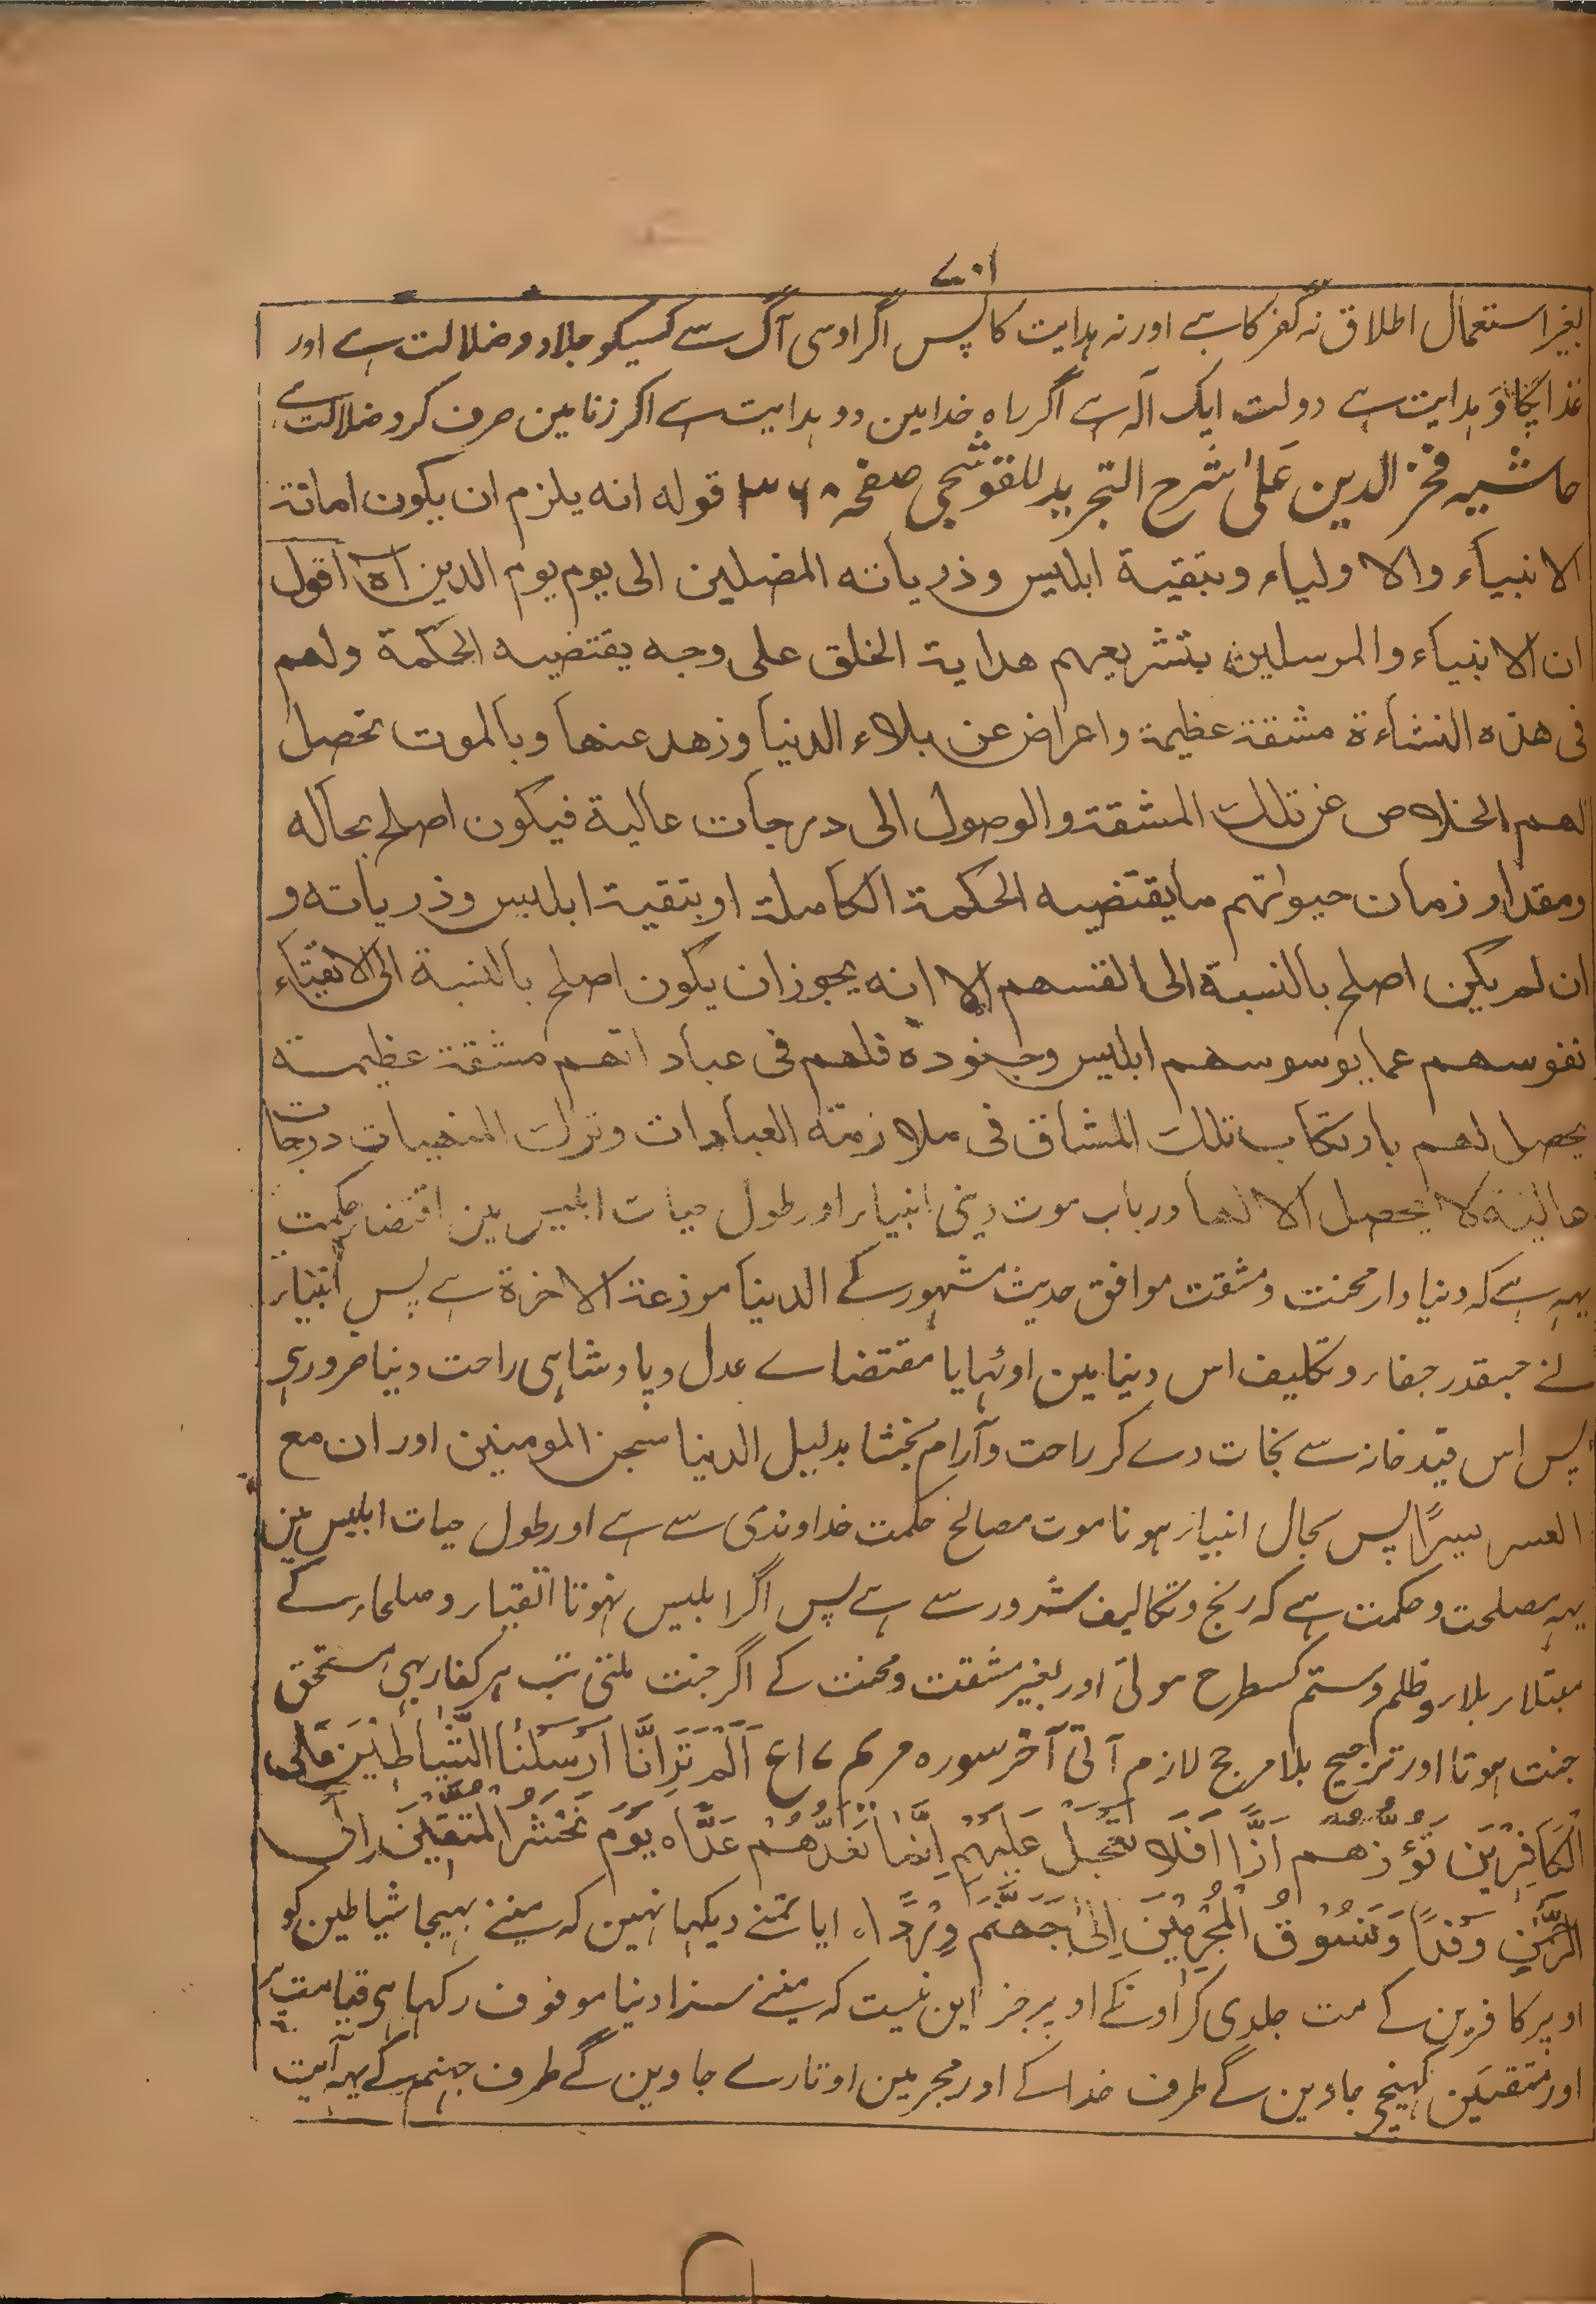 ۷۰۱
بغیر استعمال اطلاق نہ کفر کا ہے اور نہ ہدایت کا پس اگر اوسی آگ سے کسیکو جلاد و ضلالت ہے اور
غذا پکاؤ ہدایت ہے دولت ایک آلہ ہے اگر راہ خدا مین دو ہدایت ہے اکر زنا مین صرف کرو ضلالت ہے
حاشیہ فخر الدین عَلیٰ شرح التجرید للقوشجی صفحہ ۳۶۸ قولہ انہ یلزم ان یکون اماتۃ
الانبیآء والاولیاء وبتقیۃ ابلیس وذریاتہ المضلین الی یوم یوم الدین آہ اقول
ان الانبیاء والمرسلین بتشریعہم ھدایۃ الخلق علی وجہ یقتضیہ الحکمۃ ولھم
فی ھذہ النشاءۃ مشقۃ عظیمۃ واعراض عن بلاء الدنیا وزھد عنھا وبالموت تحصل
لھم الخلاص عن تلک المشقۃ والوصول الی درجات عالیۃ فیکون اصلح بحالہ
ومقدار زمان حیوٰتہم مایقتضیہ الحکمۃ الکاملۃ اوبتقیۃ ابلیس وذریاتہ و
ان لم یکن اصلح بالنسبۃ الی انفسھم الا انہ یجوز ان یکون اصلح بالنسبۃ الی الاتقیآء
نفوسھم عما یوسوسھم ابلیس وجنودہ فلھم فی عباداتھم مشقۃ عظیمۃ
یحصل لھم بارتکاب تلک المشاق فی ملازمۃ العبادات وترک المنھیات درجات
عالیۃ لا یحصل الا لھا در باب موت دہی انبیاء اور طول حیات ابلیس مین اقتضاء حکمت
یہہ ہے کہ دنیا دار محنت و مشقت موافق حدیث مشہور کے الدنیا مزرعۃ الاخرۃ ہے پس انبیاء
نے جسقدر جفاء و تکلیف اس دنیا مین اوٹہایا مقتضاے عدل و پادشاہی راحت دینا ضروری
پس اس قید خانہ سے نجات دے کر راحت و آرام بخشا بدلیل الدنیا سجن المومنین اور ان مع
العسر یسرًا پس بحال انبیاء ہونا موت مصالح حکمت خداوندی سے ہے اور طول حیات ابلیس مین
یہہ مصلحت و حکمت ہے کہ رنج و تکالیف شرور سے ہے پس اگر ابلیس نہوتا اتقیاء و صلحاء کے
مبتلاء بلاء و ظلم و ستم کسطرح ہوتی اور بغیر مشقت و محنت کے اگر جنت ملتی تب ہر کفار بہی مستحق
جنت ہوتا اور ترجیح بلا مرجح لازم آتی آخر سورہ مریم ۱۷ع اَلَمْ تَرَ اَنَّا اَرْسَلْنَا الشَّیَاطِیْنَ عَلَی
الْکَافِرِیْنَ تَؤُزُّھُمْ اَزًّا اَفَلَا تَعْجَلْ عَلَیْہِمْ اِنَّمَا نَعُدُّھُمْ عَدًّا ہ یَوْمَ نَحْشُرُ الْمُتَّقِیْنَ اِلَی
الرَّحْمٰنِ وَفْدًا وَنَسُوْقُ الْمُجْرِمِیْنَ اِلیٰ جَھَنَّمَ وِرْدًا ہ ایا تمنے دیکہا نہین کہ مینے بہیجا شیاطین کو
اوپر کافرین کے مت جلدی کر اونکے اوپر جز این نیست کہ مینے سزا دنیا موقوف رکہا ہی قیامت پر
اور متقین کہینچی جاوین گے طرف خدا کے اور مجرمین اوتارے جاوین گے طرف جہنم کے یہہ آیت